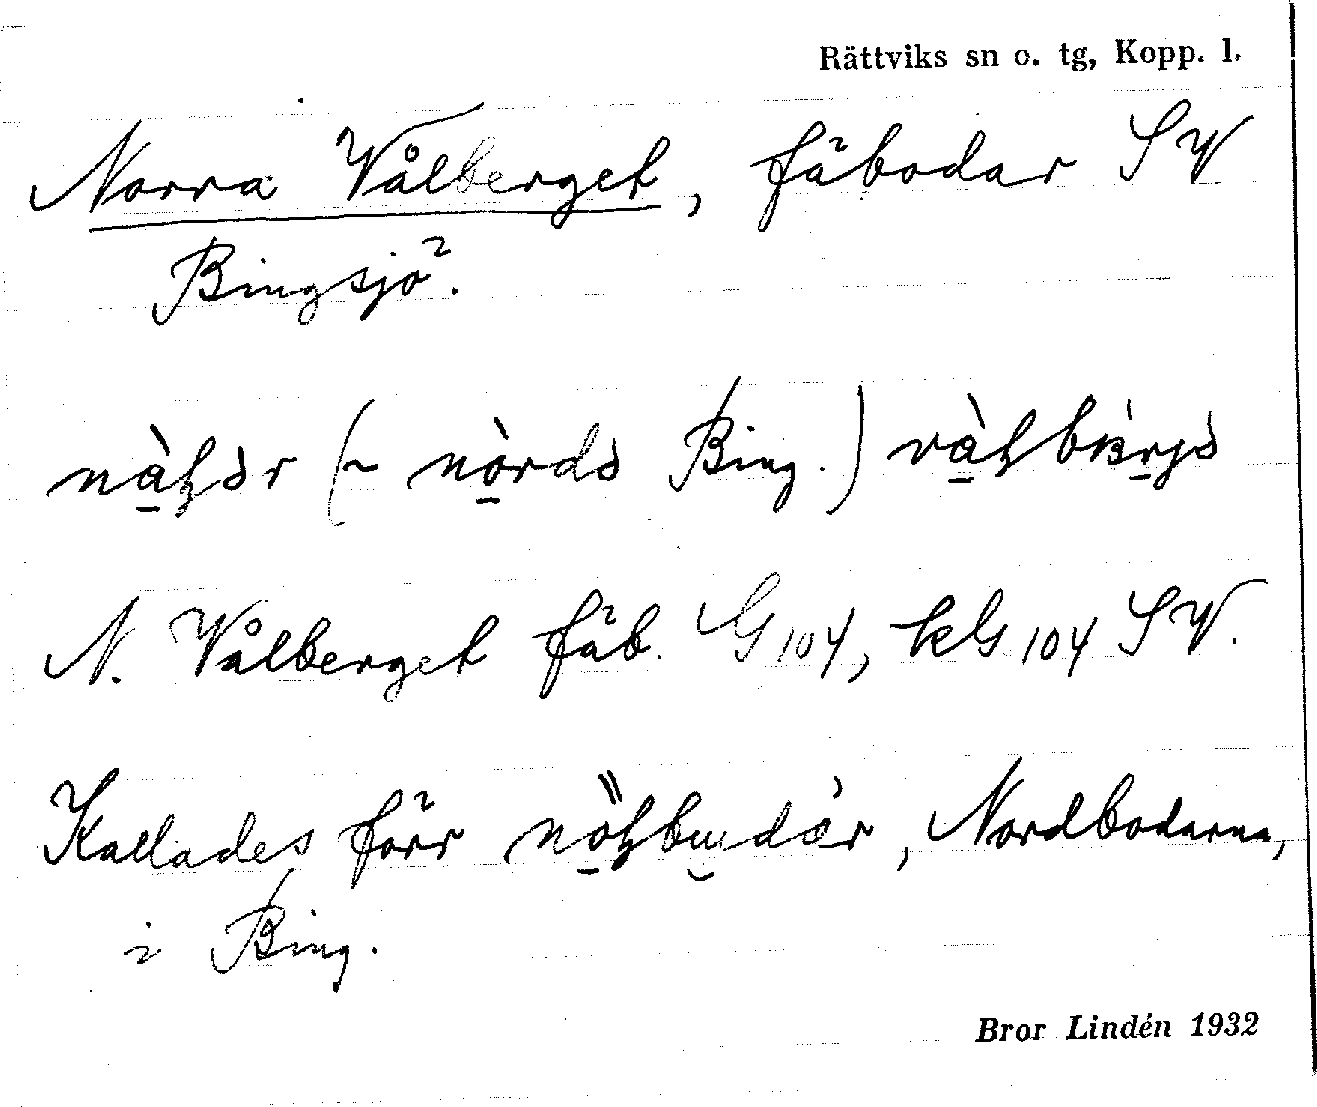 Rättviks sn o. tg, Kopp. l.
Norra Vålberget, fäbodar SV
Bingsjö.
(~ Bing.)
N. Vålberget fäb. G 104, kG 104 SV.
Kallades förr , Nordbodarna,
i Bing.
Bror Lindén 1932